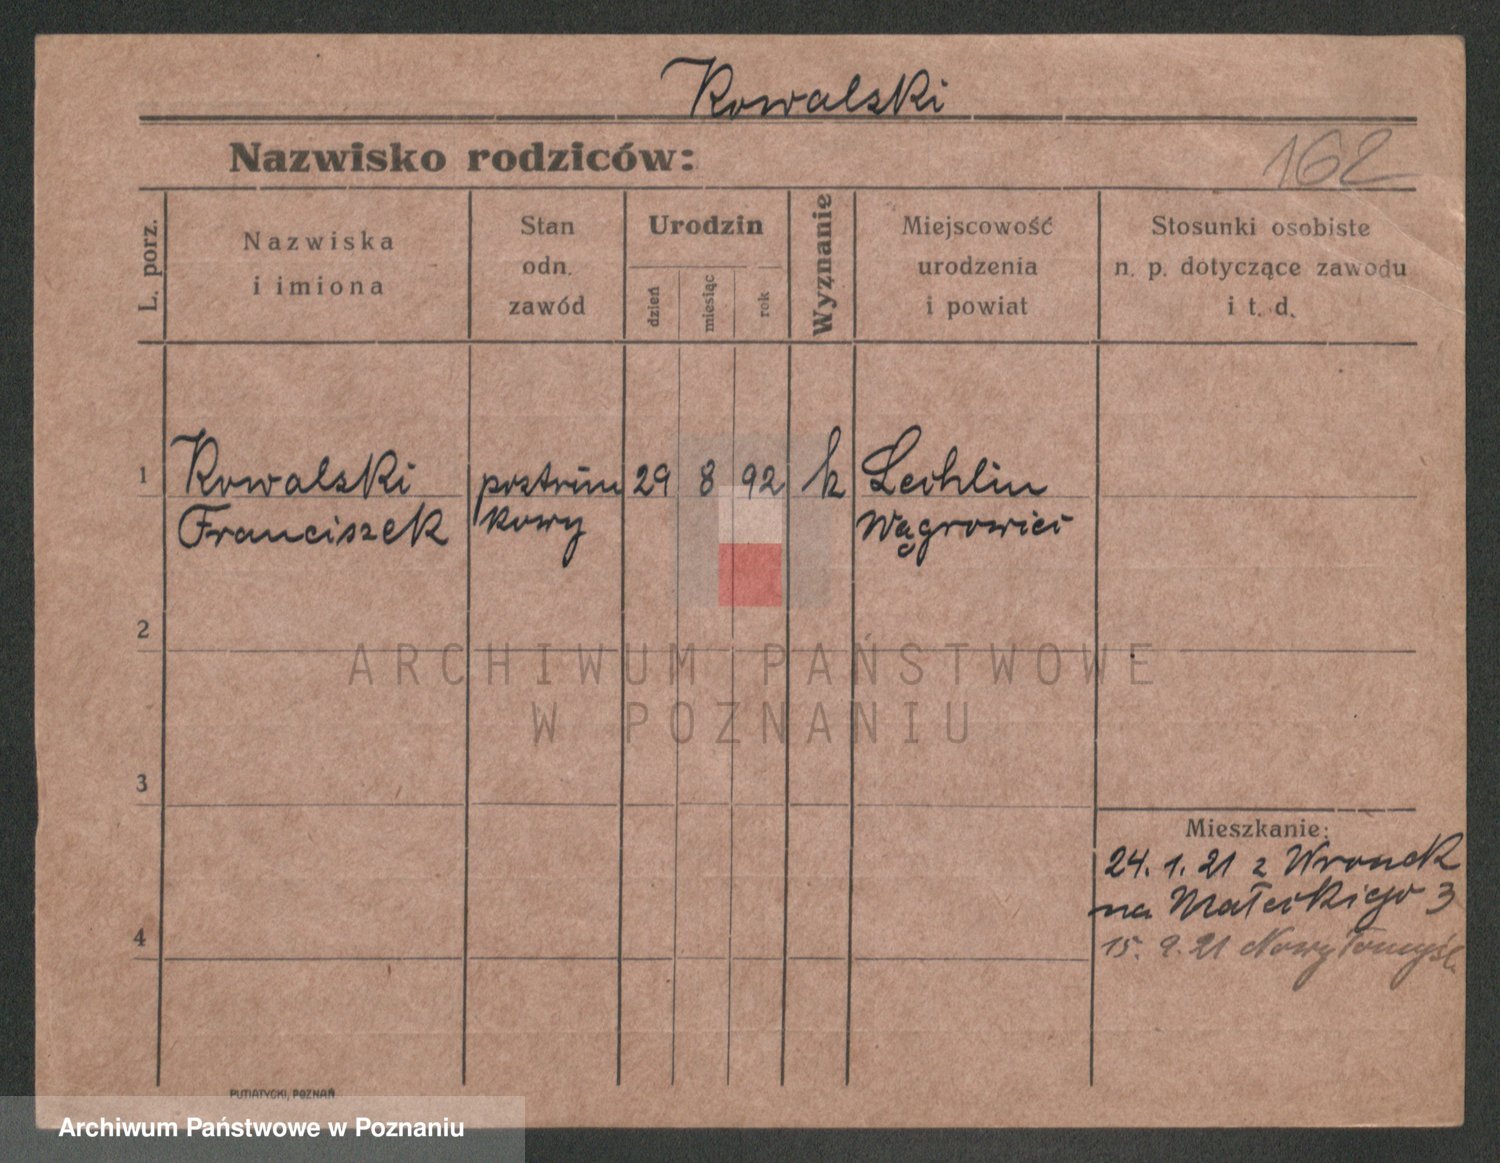 Kowalski
Nazwisko rodziców:
162
L. porz.
Nazwiska
i imiona
Stan
odn.
zawód
Urodzin
dzień
miesiąc
rok
Wyznanie
Miejscowość
urodzenia
i powiat
Stosunki osobiste
n. p. dotyczące zawodu
i t. d.
1
Kowalski
Franciszek
postrun
kowy
29
8
92
k
Lechlin
Wągrowiec
2
ARCHIWUM PAŃSTWOWE
W POZNANIU
3
Mieszkanie:
24. 1. 21 z Wronek
na Małeckiego 3
4
15. 9. 21 Nowy Tomyśl
PUTIATYCKI, POZNAŃ
Archiwum Państwowe w Poznaniu